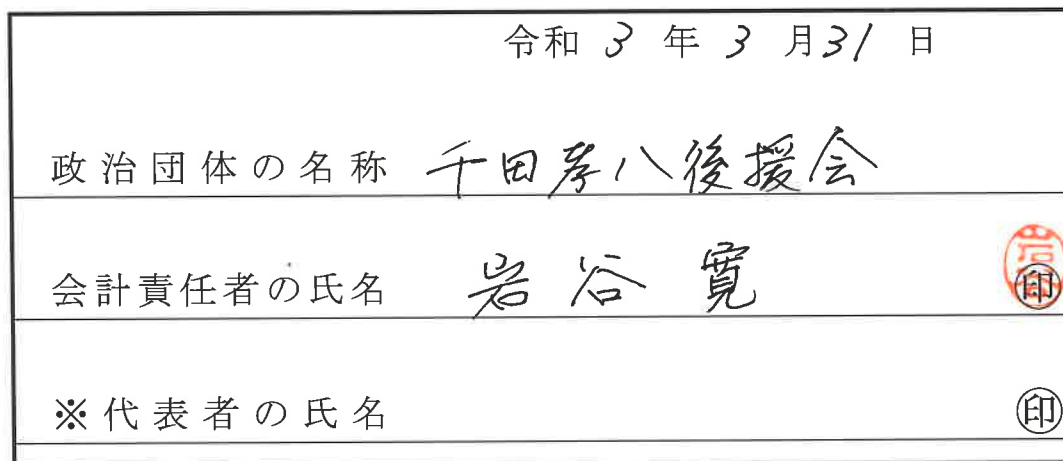 令和 3 年 3 月 31 日
政治団体の名称 千田孝八後援会
会計責任者の氏名 岩谷寛 ㊞
※代表者の氏名 ㊞